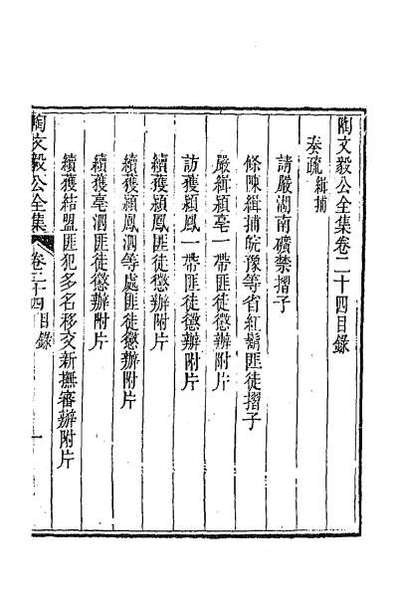 陶文毅公全集卷二十四目錄
奏疏緝捕
請嚴湖南礦禁摺子
條陳緝捕皖豫等省紅鬍匪徒摺子
嚴緝潁亳一帶匪徒懲辦附片
訪獲潁鳳一帶匪徒懲辦附片
續獲潁鳳匪徒懲辦附片
續獲潁鳳泗等處匪徒懲辦附片
續獲亳泗匪徒懲辦附片
續獲結盟匪犯多名移交新撫審辦附片
陶文毅公全集 卷二十四目錄 一